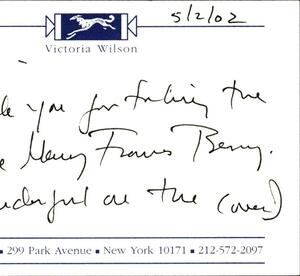 5/2/02
Victoria Wilson
you for taking the
Mary Frances Berry.
on the (over)
299 Park Avenue ▪ New York 10171 ▪ 212-572-2097